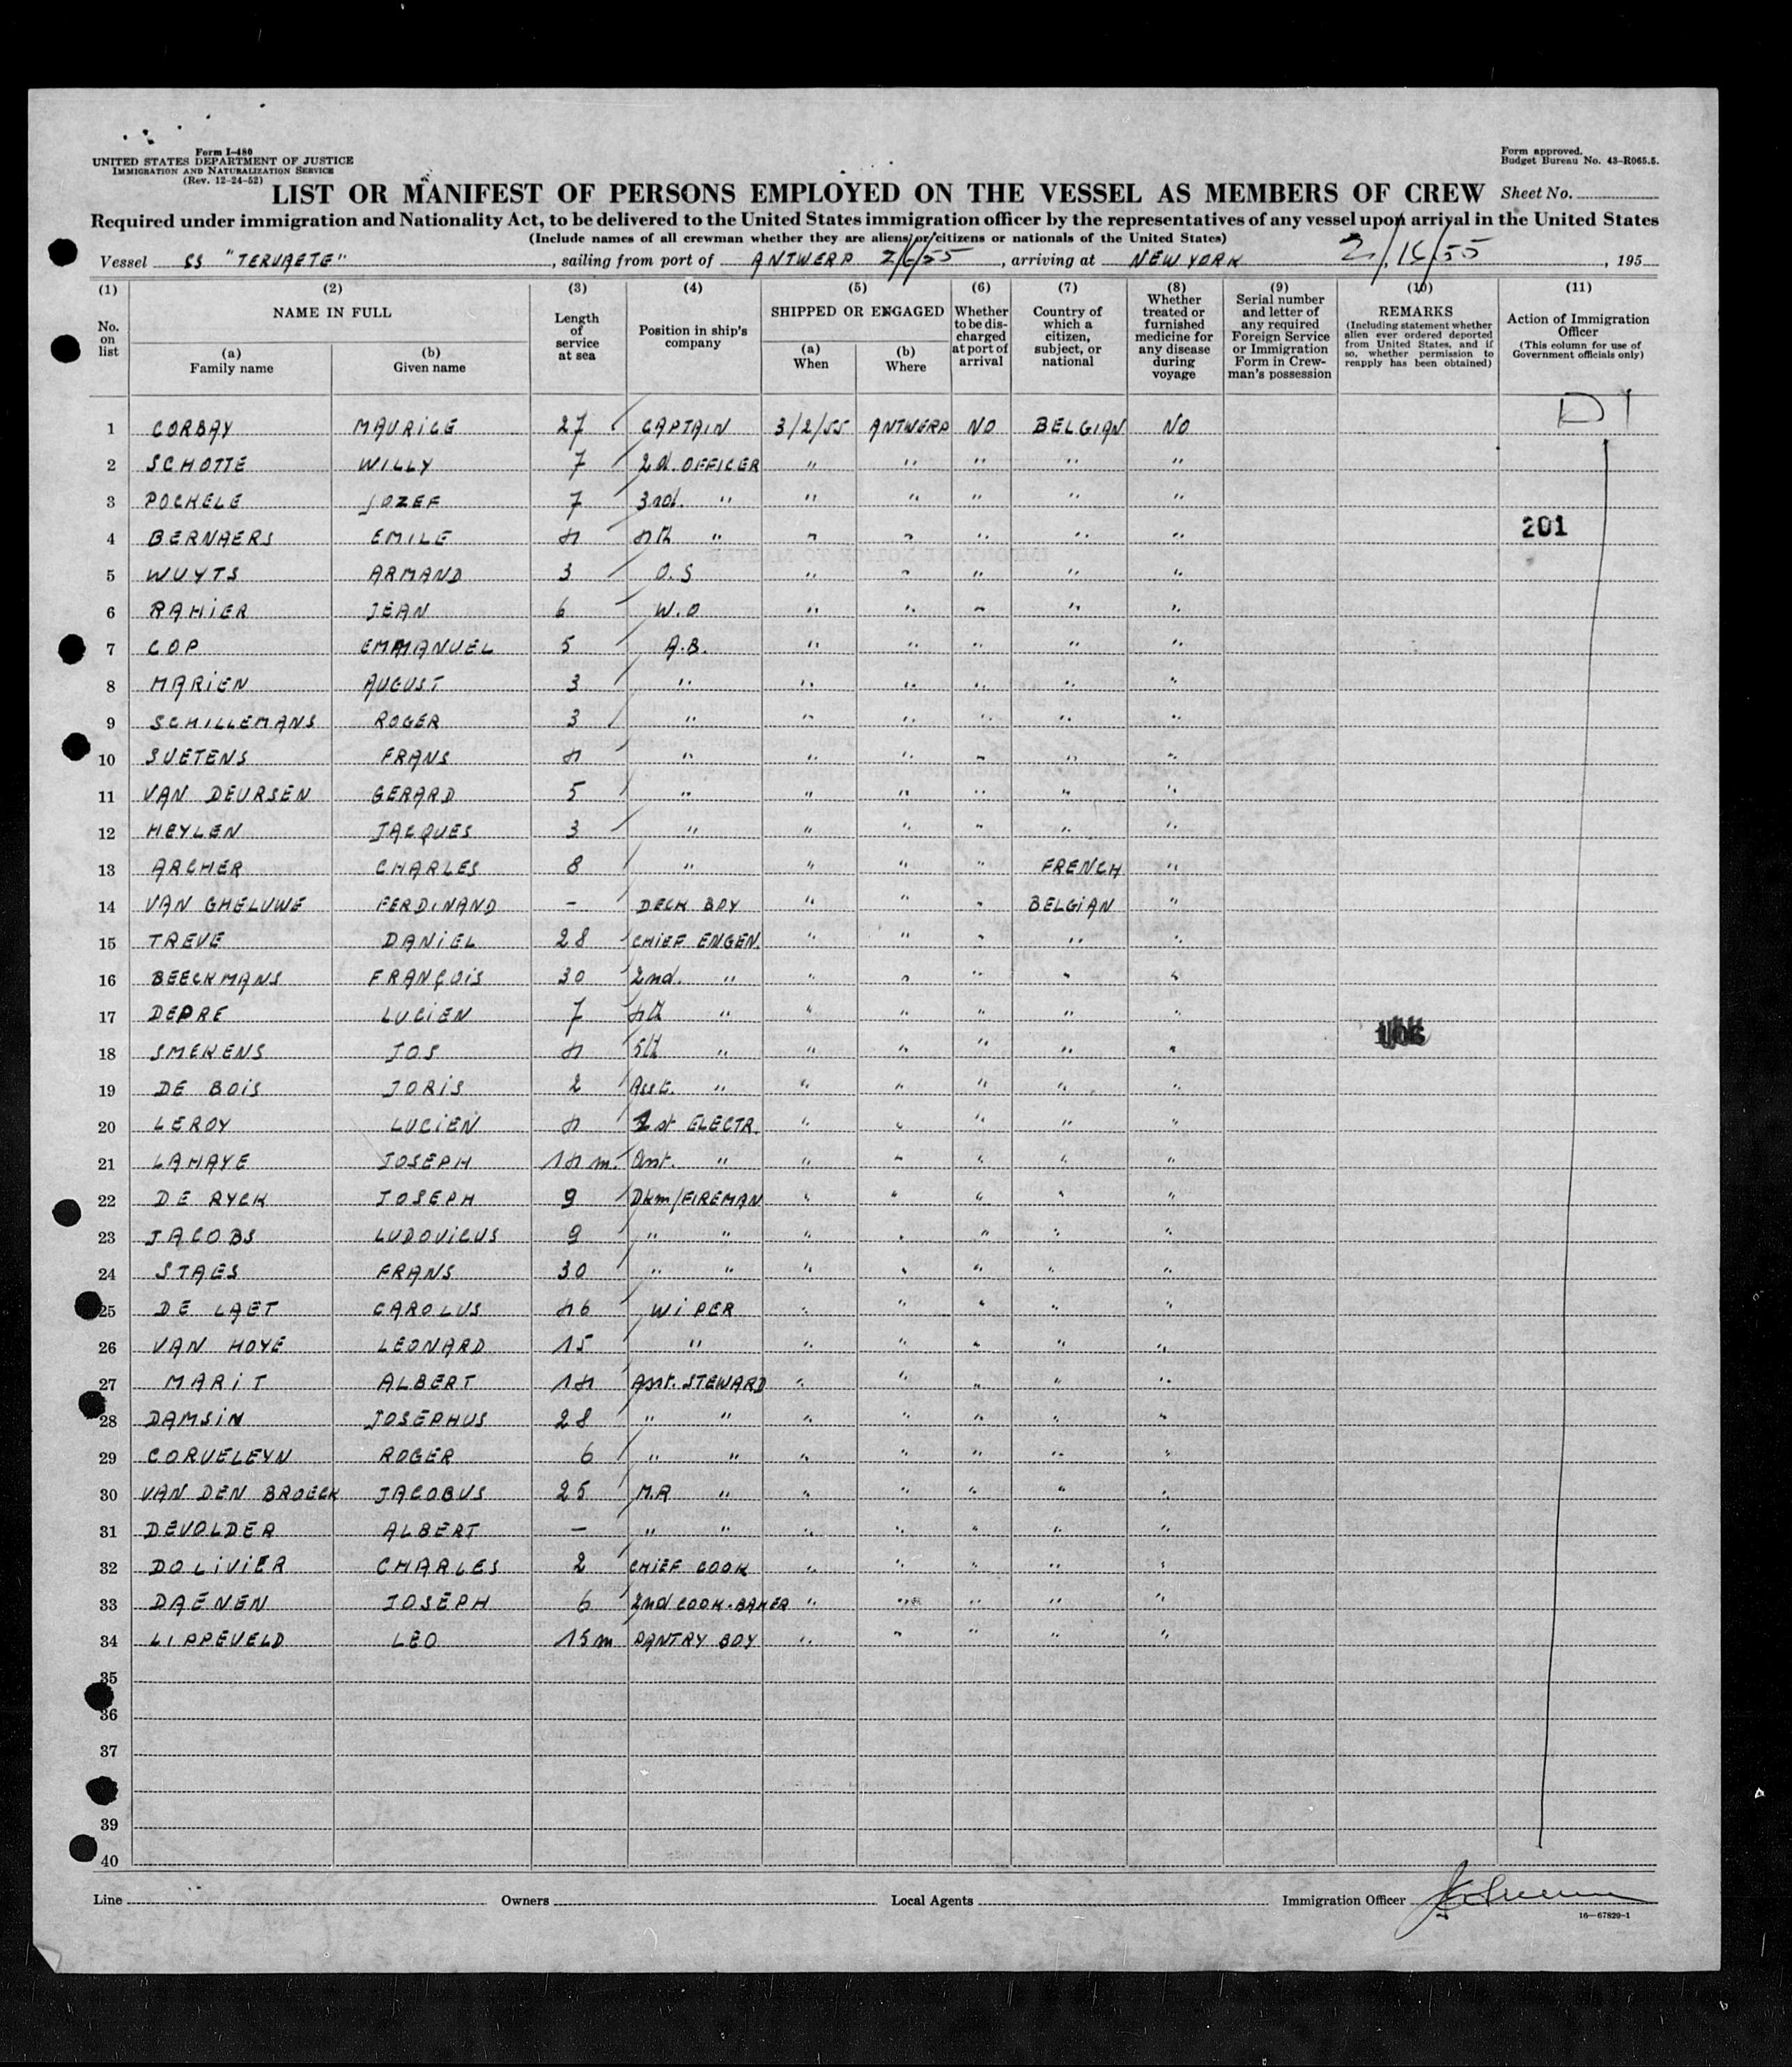 Form I-480
UNITED STATES DEPARTMENT OF JUSTICE
IMMIGRATION AND NATURALIZATION SERVICE
(Rev. 12-24-52)
Form approved.
Budget Bureau No. 43-R065.5.
LIST OR MANIFEST OF PERSONS EMPLOYED ON THE VESSEL AS MEMBERS OF CREW Sheet No.
Required under immigration and Nationality Act, to be delivered to the United States immigration officer by the representatives of any vessel upon arrival in the United States
(Include names of all crewman whether they are aliens or citizens or nationals of the United States)
Vessel SS "TERVAETE", sailing from port of ANTWERP 2/6/55, arriving at NEW YORK 2/16/55, 195
(1) No. on list
(2) NAME IN FULL
(a) Family name
(b) Given name
(3) Length of service at sea
(4) Position in ship's company
(5) SHIPPED OR ENGAGED
(a) When
(b) Where
(6) Whether to be discharged at port of arrival
(7) Country of which a citizen, subject, or national
(8) Whether treated or furnished medicine for any disease during voyage
(9) Serial number and letter of any required Foreign Service or Immigration Form in Crewman's possession
(10) REMARKS (Including statement whether alien ever ordered deported from United States, and if so, whether permission to reapply has been obtained)
(11) Action of Immigration Officer (This column for use of Government officials only)
1 CORBAY MAURICE 27 CAPTAIN 3/2/55 ANTWERP NO BELGIAN NO D1
2 SCHOTTE WILLY 7 2d. OFFICER " " " " "
3 POCKELE JOZEF 7 3rd. " " " " " "
4 BERNAERS EMILE 4 4th " " " " " " 201
5 WUYTS ARMAND 3 O.S " " " " "
6 RAHIER JEAN 6 W.O " " " " "
7 COP EMMANUEL 5 A.B. " " " " "
8 MARIEN AUGUST 3 " " " " " "
9 SCHILLEMANS ROGER 3 " " " " " "
10 SUETENS FRANS 4 " " " " " "
11 VAN DEURSEN GERARD 5 " " " " " "
12 HEYLEN JACQUES 3 " " " " " "
13 ARCHER CHARLES 8 " " " " FRENCH "
14 VAN GHELUWE FERDINAND - DECK BOY " " " BELGIAN "
15 TREVE DANIEL 28 CHIEF ENGEN. " " " " "
16 BEECKMANS FRANÇOIS 30 2nd. " " " " " "
17 DEPRE LUCIEN 7 4th " " " " " "
18 SMEKENS JOS 4 5th " " " " " "
19 DE BOIS JORIS 2 Asst. " " " " " "
20 LEROY LUCIEN 4 1st ELECTR. " " " " "
21 LAHAYE JOSEPH 14 m. Ast. " " " " " "
22 DE RYCK JOSEPH 9 Dkm/FIREMAN " " " " "
23 JACOBS LUDOVICUS 9 " " " " " " "
24 STAES FRANS 30 " " " " " " "
25 DE LAET CAROLUS 46 WIPER " " " " "
26 VAN HOYE LEONARD 15 " " " " " "
27 MARIT ALBERT 14 Asst. STEWARD " " " " "
28 DAMSIN JOSEPHUS 28 " " " " " " "
29 CORVELEYN ROGER 6 " " " " " " "
30 VAN DEN BROECK JACOBUS 25 M.R " " " " " "
31 DEVOLDER ALBERT - " " " " " " "
32 DOLIVIER CHARLES 2 CHIEF COOK " " " " "
33 DAENEN JOSEPH 6 2nd COOK-BAKER " " " " "
34 LIPPEVELD LEO 15 m PANTRY BOY " " " " "
35
36
37
39
40
Line Owners Local Agents Immigration Officer
16—67820-1